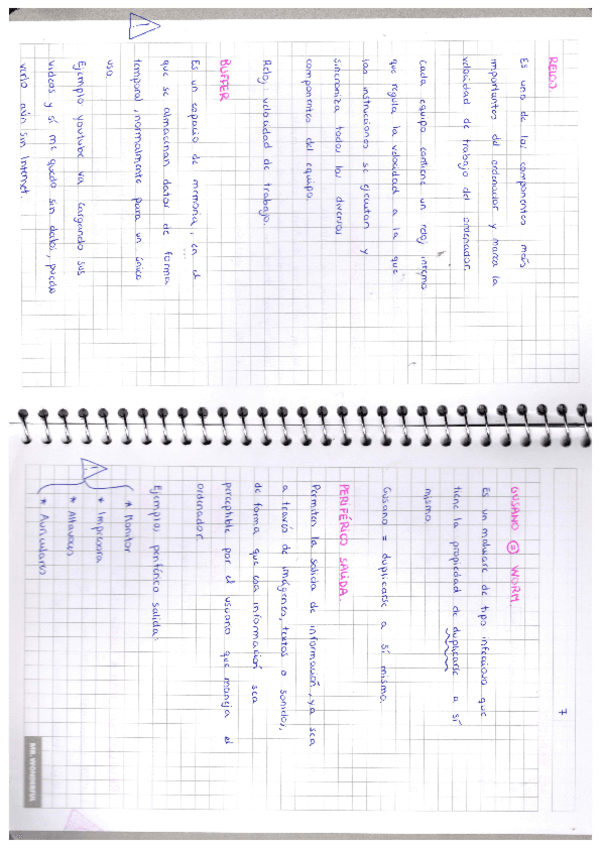 RELOJ.
Es uno de los componentes más
importantes del ordenador y marca la
velocidad de trabajo del ordenador.
Cada equipo contiene un reloj interno
que regula la velocidad a la que
las instrucciones se ejecutan y
sincroniza todos los diversos
componentes del equipo.
Reloj: velocidad de trabajo.
BUFFER
Es un espacio de memoria, en el
que se almacenan datos de forma
temporal, normalmente para un único
uso.
Ejemplo youtube va cargando sus
videos y si me quedo sin datos, puedo
verlo aún sin Internet.
7
GUSANO = WORM.
Es un malware de tipo infeccioso que
tiene la propiedad de duplicarse a sí
mismo.
Gusano = duplicarse a sí mismo.
PERIFÉRICO SALIDA.
Permiten la salida de información, ya sea
a través de imágenes, textos o sonidos,
de forma que esa información sea
perceptible por el usuario que maneja el
ordenador.
Ejemplos periférico salida:
* Monitor
* Impresora
* Altavoces
* Auriculares
MR. WONDERFUL